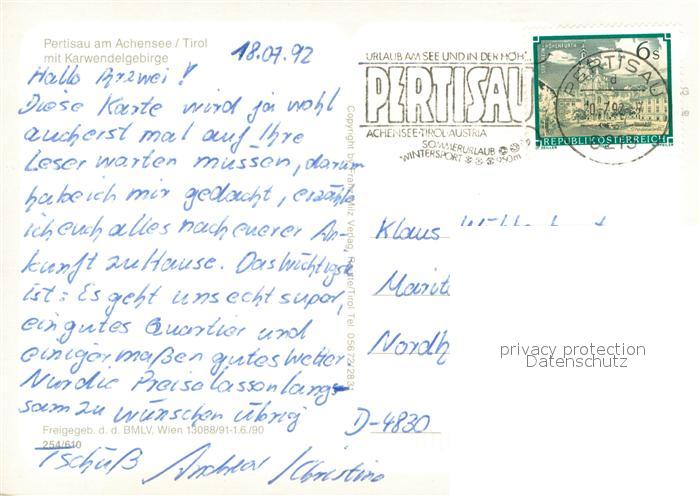 Pertisau am Achensee / Tirol
mit Karwendelgebirge
18.07.92
Hallo Ihr zwei!
Diese Karte wird ja wohl
auch erst mal auf Ihre
Leser warten müssen, darum
habe ich mir gedacht, erzähle
ich euch alles nach eurer An-
kunft zu Hause. Das Wichtigste
ist: Es geht uns echt super,
ein gutes Quartier und
einigermaßen gutes Wetter.
Nur die Preise lassen lang-
sam zu wünschen übrig
Freigegeb. d. d. BMLV, Wien 13088/91-1.6./90
254/610
Tschüß Andrea / Christine
URLAUB AM SEE UND IN DER HÖH'...
PERTISAU
ACHENSEE-TIROL-AUSTRIA
SOMMERURLAUB
WINTERSPORT 950m
6 S
REPUBLIK ÖSTERREICH
PERTISAU
Klaus
Marit
Nordh
D-4830
privacy protection
Datenschutz